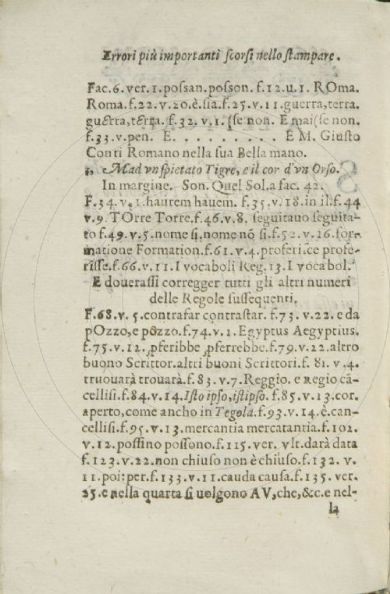 Errori più importanti scorsi nello stampare.
Fac. 6. ver. 1. possan. posson. f. 12. u. 1. ROma.
Roma. f. 22. v. 20. è. sia. f. 25. v. 11. guerra, terra.
guɛrra, tɛrra. f. 32. v. 1. sse non. E mai sse non.
f. 33. v. pen. E. . . . . . . . . E M. Giusto
Conti Romano nella sua Bella mano.
Mad'vn spietato Tigre, e il cor d'vn Orso.
In margine. Son. Quel Sol. a fac. 42.
F. 34. v. 1. hautem hauem. f. 35. v. 18. in il. f. 44
v. 9. TOrre Torre. f. 46. v. 8. seguitauo seguita-
to f. 49. v. 5. nome si, nome nō si. f. 52. v. 16. for-
matione Formation. f. 61. v. 4. proferisce profe-
risse. f. 66. v. 11. I vocaboli Reg. 13. I vocabol.
E douerassi corregger tutti gli altri numeri
delle Regole sussequenti.
F. 68. v. 5. contrafar contrastar. f. 73. v. 22. e da
pOzzo, e pozzo. f. 74. v. 1. Egyptus Aegyptius.
f. 75. v. 12. ꝓferibbe ꝓferrebbe. f. 79. v. 22. altro
buono Scrittor. altri buoni Scrittori. f. 81. v. 4.
truouarà trouarà. f. 83. v. 7. Reggio. e Regio cā-
cellisi. f. 84. v. 14. Isto ipso, istipso. f. 85. v. 13. cor.
aperto, come ancho in Tegola. f. 93. v. 14. è can-
cellisi. f. 95. v. 13. mercantia mercatantia. f. 102.
v. 12. possino possono. f. 115. ver. vlt. darà data
f. 123. v. 22. non chiuso non è chiuso. f. 132. v.
11. poi: per. f. 133. v. 11. cauda causa. f. 135. ver.
25. e nella quarta si uolgono AV, che, &c. e nel-
la